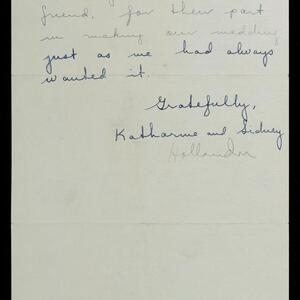 friend, for their part
in making our wedding
just as we had always
wanted it.
Gratefully,
Katharine and Sidney
Hollander